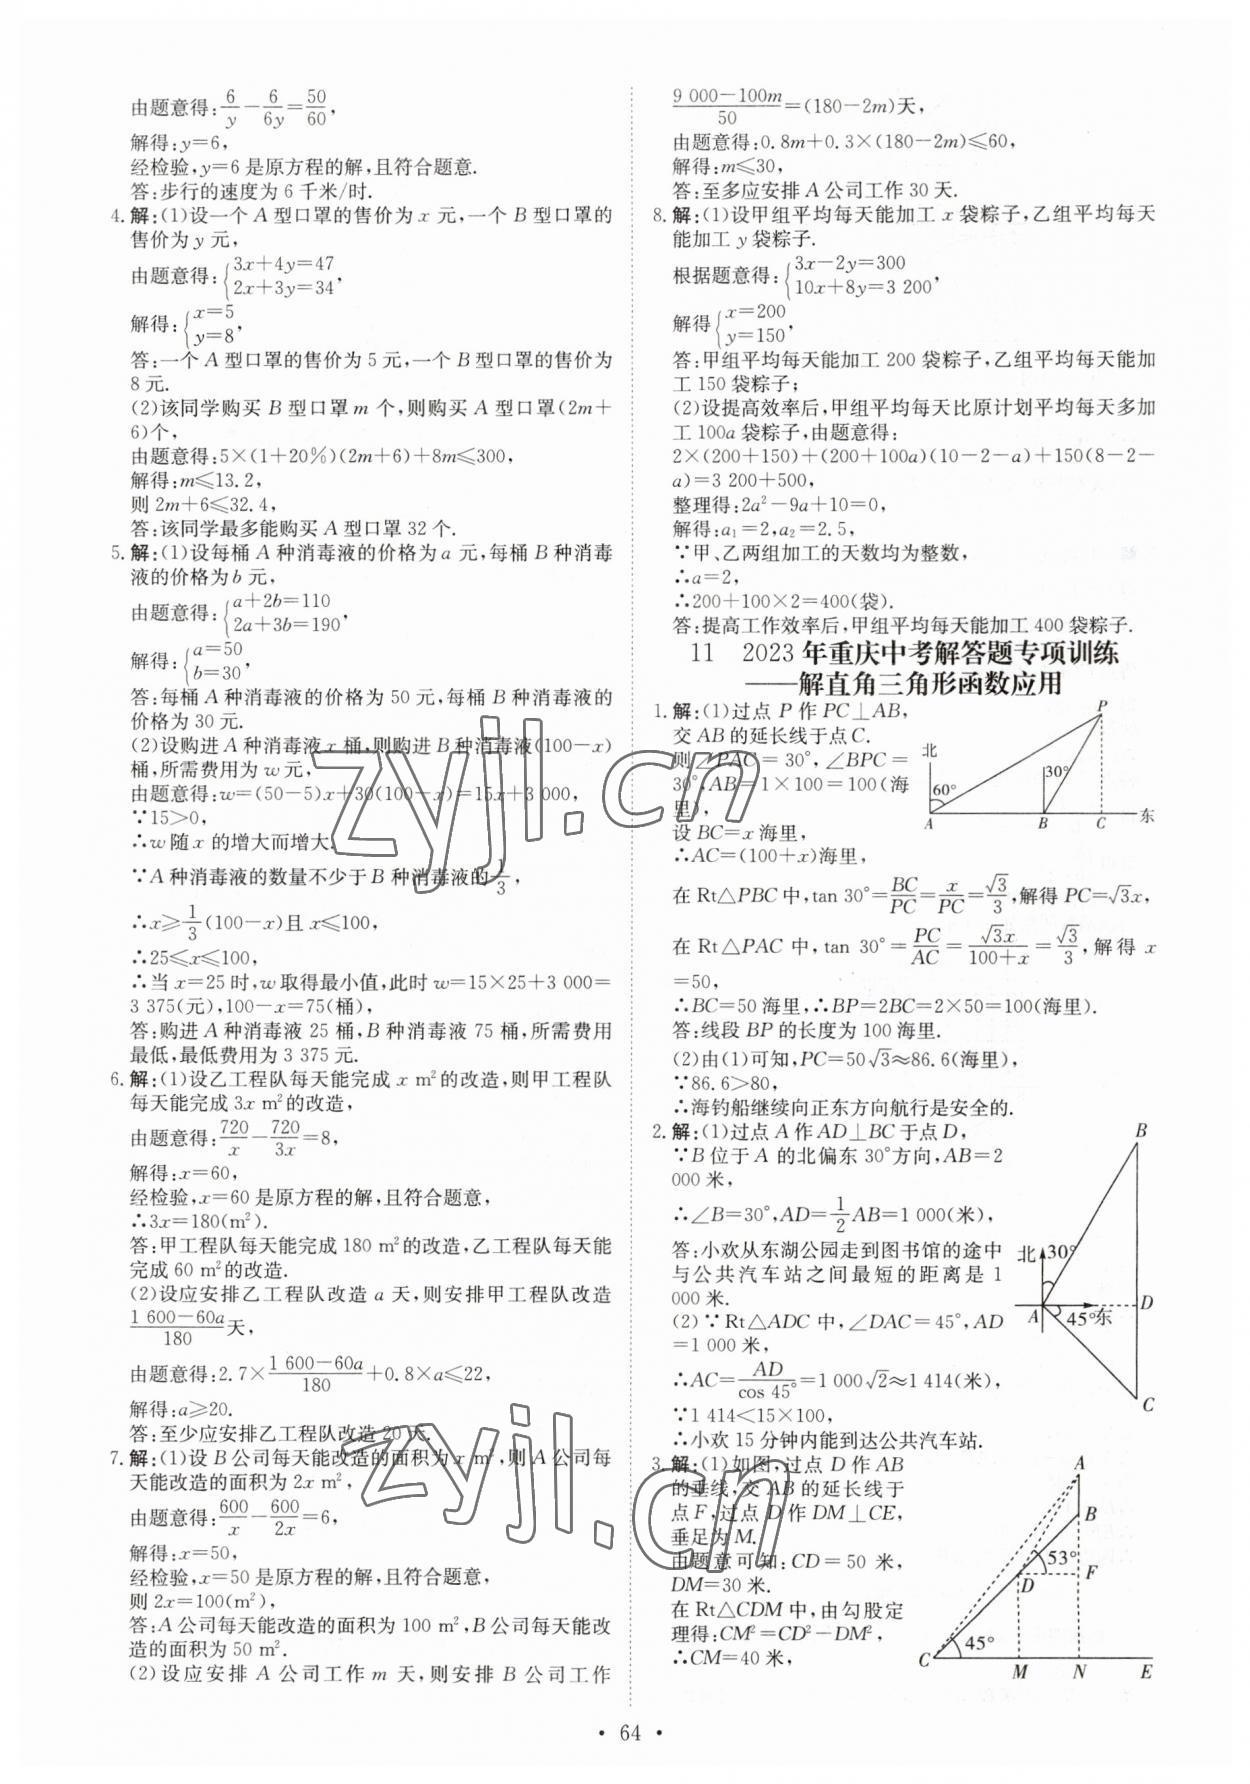 由题意得:6/y－6/6y＝50/60，
解得:y＝6，
经检验,y＝6是原方程的解,且符合题意.
答:步行的速度为6千米/时.
4.解:(1)设一个A型口罩的售价为x元,一个B型口罩的
售价为y元，
由题意得:{3x＋4y＝47
2x＋3y＝34，
解得:{x＝5
y＝8，
答:一个A型口罩的售价为5元,一个B型口罩的售价为
8元.
(2)该同学购买B型口罩m个,则购买A型口罩(2m＋
6)个，
由题意得:5×(1＋20%)(2m＋6)＋8m≤300，
解得:m≤13.2，
则2m＋6≤32.4，
答:该同学最多能购买A型口罩32个.
5.解:(1)设每桶A种消毒液的价格为a元,每桶B种消毒
液的价格为b元，
由题意得:{a＋2b＝110
2a＋3b＝190，
解得:{a＝50
b＝30，
答:每桶A种消毒液的价格为50元,每桶B种消毒液的
价格为30元.
(2)设购进A种消毒液x桶,则购进B种消毒液(100－x)
桶,所需费用为w元，
由题意得:w＝(50－5)x＋30(100－x)＝15x＋3 000，
∵15＞0，
∴w随x的增大而增大.
∵A种消毒液的数量不少于B种消毒液的1/3，
∴x≥1/3(100－x)且x≤100，
∴25≤x≤100，
∴当x＝25时,w取得最小值,此时w＝15×25＋3 000＝
3 375(元),100－x＝75(桶)，
答:购进A种消毒液25桶,B种消毒液75桶,所需费用
最低,最低费用为3 375元.
6.解:(1)设乙工程队每天能完成x m²的改造,则甲工程队
每天能完成3x m²的改造，
由题意得:720/x－720/3x＝8，
解得:x＝60，
经检验,x＝60是原方程的解,且符合题意，
∴3x＝180(m²).
答:甲工程队每天能完成180 m²的改造,乙工程队每天能
完成60 m²的改造.
(2)设应安排乙工程队改造a天,则安排甲工程队改造
(1 600－60a)/180天，
由题意得:2.7×(1 600－60a)/180＋0.8×a≤22，
解得:a≥20.
答:至少应安排乙工程队改造20天.
7.解:(1)设B公司每天能改造的面积为x m²,则A公司每
天能改造的面积为2x m²，
由题意得:600/x－600/2x＝6，
解得:x＝50，
经检验,x＝50是原方程的解,且符合题意，
则2x＝100(m²)，
答:A公司每天能改造的面积为100 m²,B公司每天能改
造的面积为50 m².
(2)设应安排A公司工作m天,则安排B公司工作
(9 000－100m)/50＝(180－2m)天，
由题意得:0.8m＋0.3×(180－2m)≤60，
解得:m≤30，
答:至多应安排A公司工作30天.
8.解:(1)设甲组平均每天能加工x袋粽子,乙组平均每天
能加工y袋粽子.
根据题意得:{3x－2y＝300
10x＋8y＝3 200，
解得{x＝200
y＝150，
答:甲组平均每天能加工200袋粽子,乙组平均每天能加
工150袋粽子；
(2)设提高效率后,甲组平均每天比原计划平均每天多加
工100a袋粽子,由题意得:
2×(200＋150)＋(200＋100a)(10－2－a)＋150(8－2－
a)＝3 200＋500，
整理得:2a²－9a＋10＝0，
解得:a₁＝2,a₂＝2.5，
∵甲、乙两组加工的天数均为整数，
∴a＝2，
∴200＋100×2＝400(袋).
答:提高工作效率后,甲组平均每天能加工400袋粽子.
11 2023年重庆中考解答题专项训练
——解直角三角形函数应用
1.解:(1)过点P作PC⊥AB，
交AB的延长线于点C.
则∠PAC＝30°,∠BPC＝
30°,AB＝1×100＝100(海
里)，
设BC＝x海里，
∴AC＝(100＋x)海里，
在Rt△PBC中,tan 30°＝BC/PC＝x/PC＝√3/3,解得PC＝√3x，
在Rt△PAC中,tan 30°＝PC/AC＝√3x/(100＋x)＝√3/3,解得x
＝50，
∴BC＝50海里,∴BP＝2BC＝2×50＝100(海里).
答:线段BP的长度为100海里.
(2)由(1)可知,PC＝50√3≈86.6(海里)，
∵86.6＞80，
∴海钓船继续向正东方向航行是安全的.
北
60°
30°
P
A
B
C
东
2.解:(1)过点A作AD⊥BC于点D，
∵B位于A的北偏东30°方向,AB＝2
000米，
∴∠B＝30°,AD＝1/2AB＝1 000(米)，
答:小欢从东湖公园走到图书馆的途中
与公共汽车站之间最短的距离是1
000米.
(2)∵Rt△ADC中,∠DAC＝45°,AD
＝1 000米，
∴AC＝AD/cos 45°＝1 000√2≈1 414(米)，
∵1 414＜15×100，
∴小欢15分钟内能到达公共汽车站.
B
北
30°
A
45°
东
D
C
3.解:(1)如图,过点D作AB
的垂线,交AB的延长线于
点F,过点D作DM⊥CE，
垂足为M.
由题意可知:CD＝50米，
DM＝30米.
在Rt△CDM中,由勾股定
理得:CM²＝CD²－DM²，
∴CM＝40米，
A
B
53°
D
F
45°
C
M
N
E
• 64 •
zyjl.cn
zyjl.cn